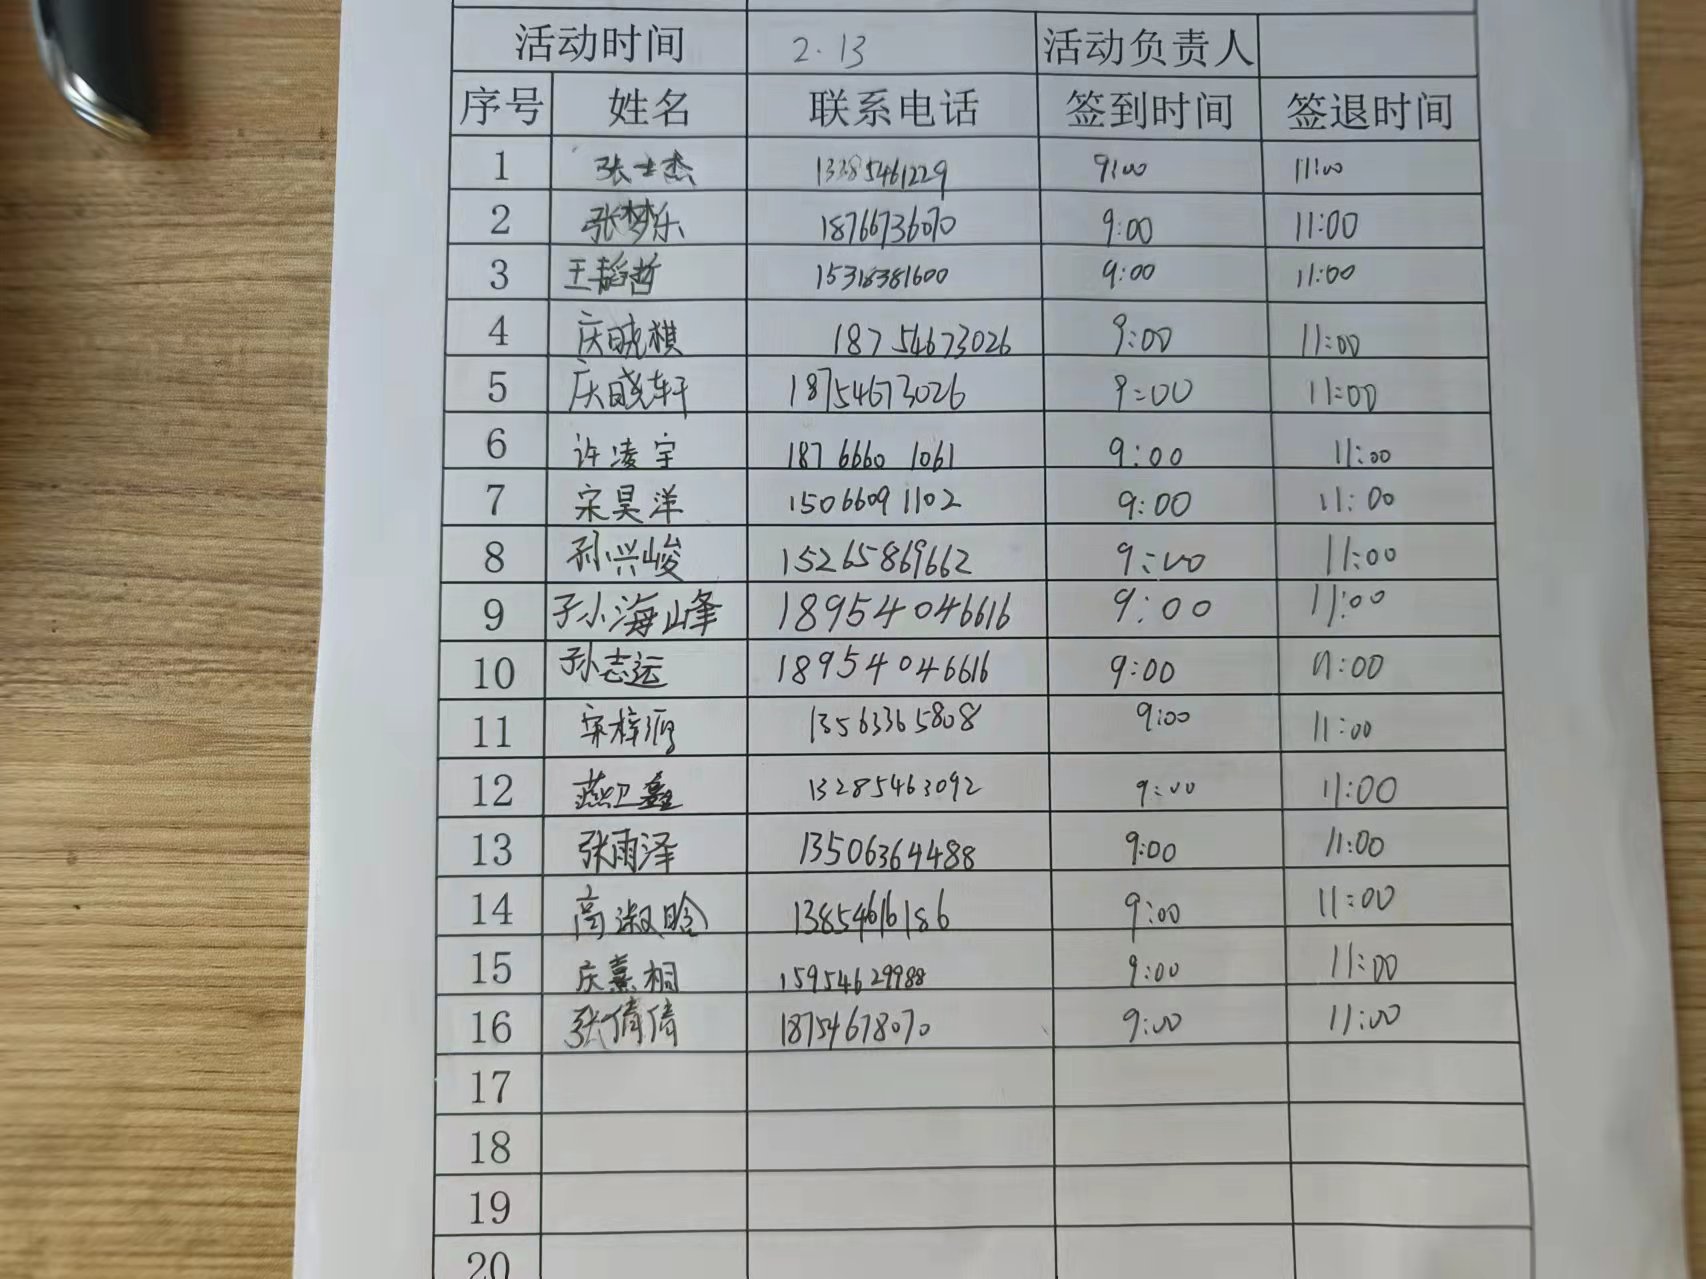 活动时间 2.13 活动负责人
序号 姓名 联系电话 签到时间 签退时间
1 张士杰 13385461229 9:00 11:00
2 张梦乐 18766736070 9:00 11:00
3 王韬哲 15318381600 9:00 11:00
4 庆晓棋 18754673026 9:00 11:00
5 庆晓轩 18754673026 9:00 11:00
6 许凌宇 187 6660 1061 9:00 11:00
7 宋昊洋 15066091102 9:00 11:00
8 孙兴峻 15265869662 9:00 11:00
9 孙海峰 18954046616 9:00 11:00
10 孙志运 18954046616 9:00 11:00
11 宋梓 13563365808 9:00 11:00
12 燕卫鑫 13285463092 9:00 11:00
13 张雨泽 13506364488 9:00 11:00
14 高淑晗 13854616186 9:00 11:00
15 庆熹桐 15954629988 9:00 11:00
16 张倩倩 18754678070 9:00 11:00
17
18
19
20